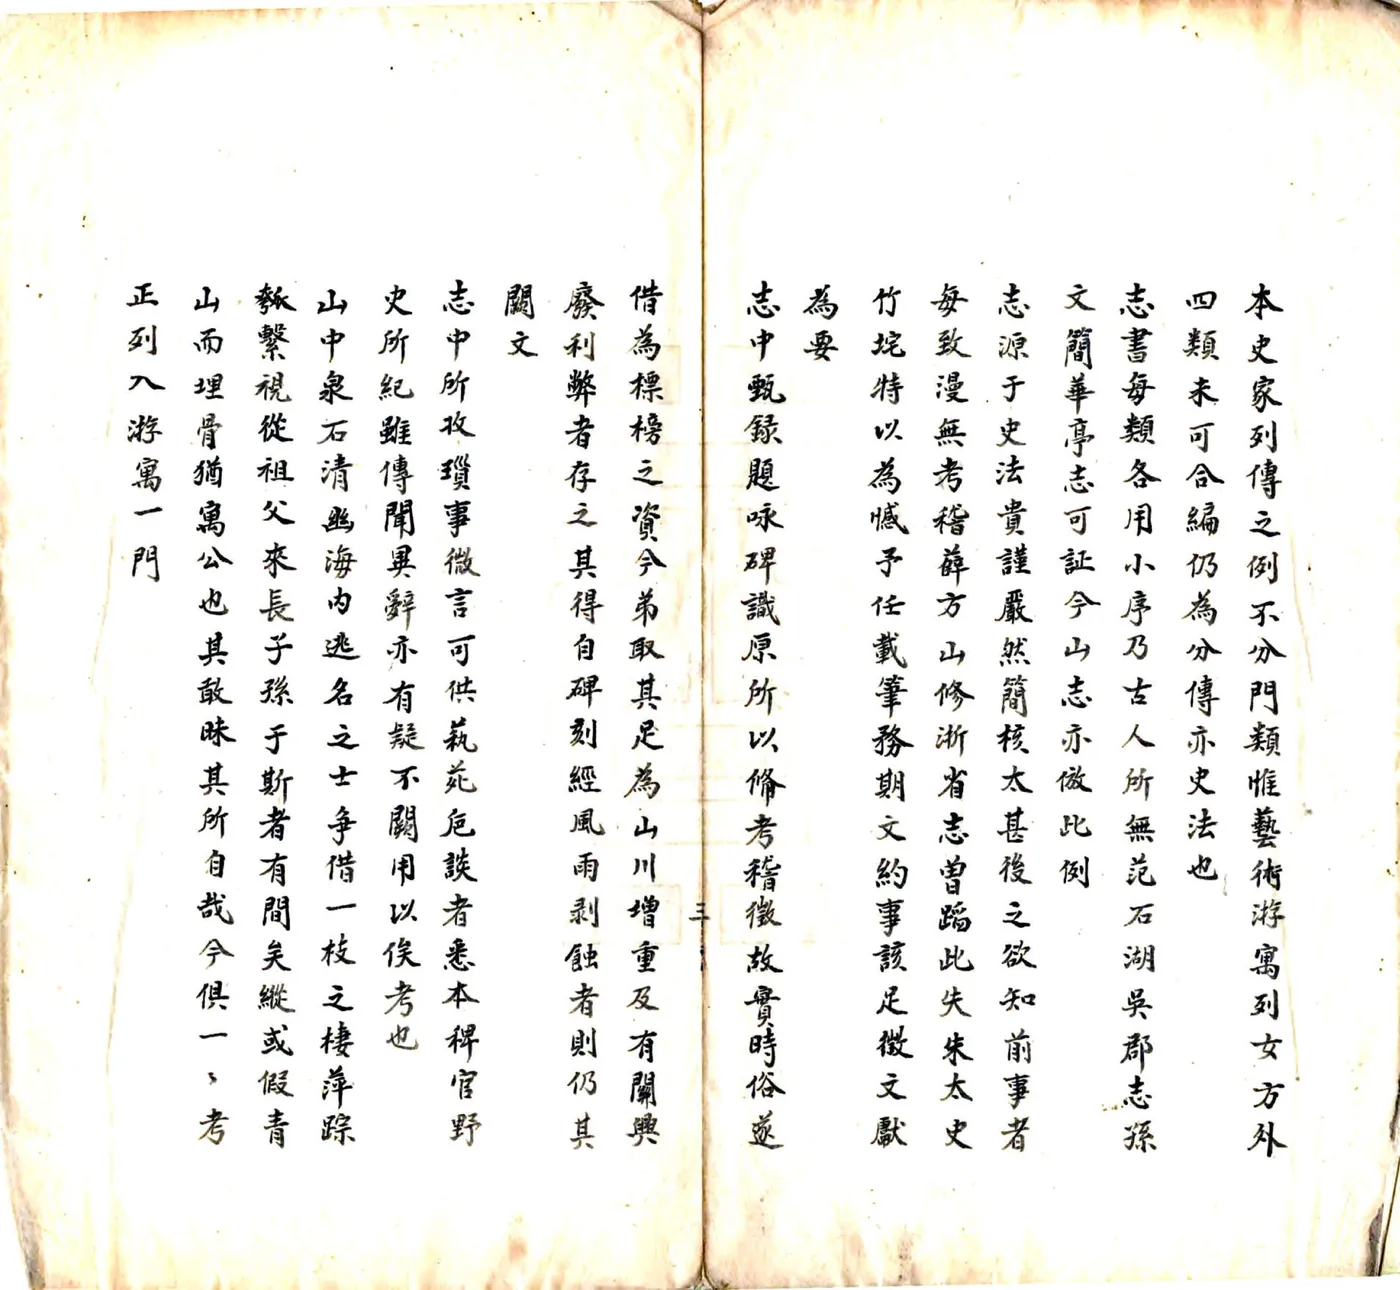 本史家列傳之例不分門類惟藝術游寓列女方外
四類未可合編仍為分傳亦史法也
志書每類各用小序乃古人所無范石湖吳郡志孫
文簡華亭志可証今山志亦倣此例
志源于史法貴謹嚴然簡核太甚後之欲知前事者
每致漫無考稽薛方山修浙省志曽蹈此失朱太史
竹垞特以為憾予任載筆務期文約事該足徵文獻
為要
志中甄録題咏碑識原所以脩考稽徵故實時俗遂
三
借為標榜之資今弟取其足為山川增重及有關興
廢利弊者存之其得自碑刻經風雨剥蝕者則仍其
闕文
志中所攷瑣事微言可供蓺苑卮談者悉本稗官野
史所紀雖傳聞異辭亦有疑不闕用以俟考也
山中泉石清幽海内逃名之士争借一枝之棲萍踪
匏繫視從祖父來長子孫于斯者有間矣縱或假青
山而埋骨猶寓公也其敢昧其所自哉今俱一〻考
正列入游寓一門